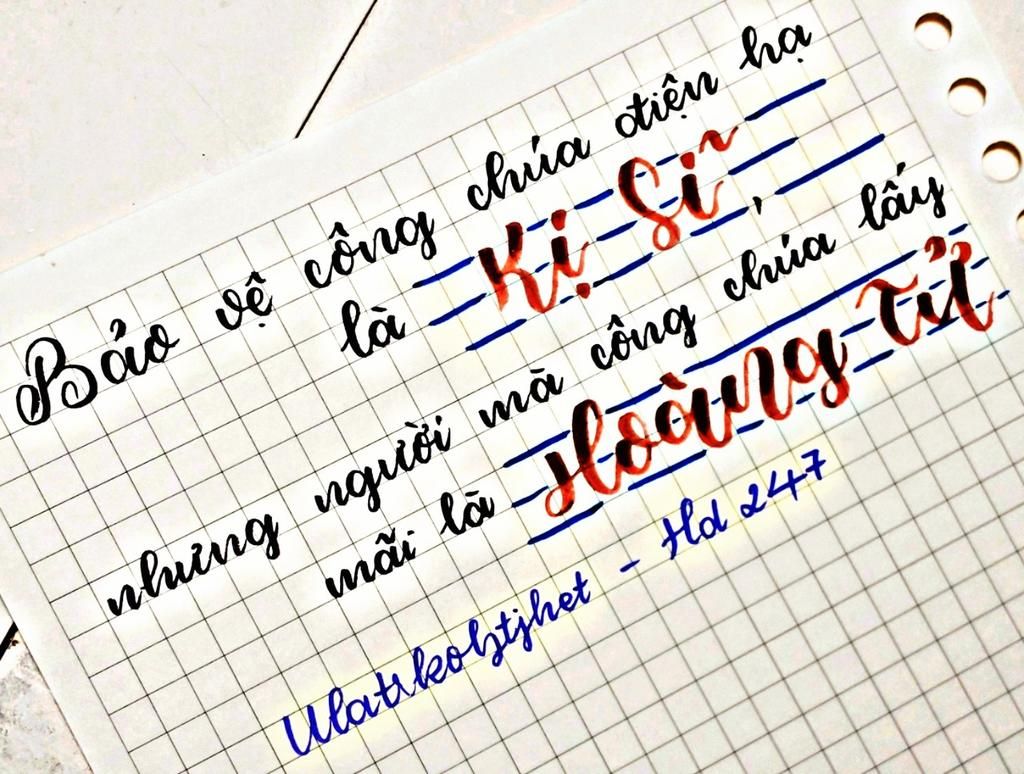 Bảo vệ công chúa điện hạ
là Kị Sĩ,
nhưng người mà công chúa lấy
mãi là Hoàng Tử
- Hd 247